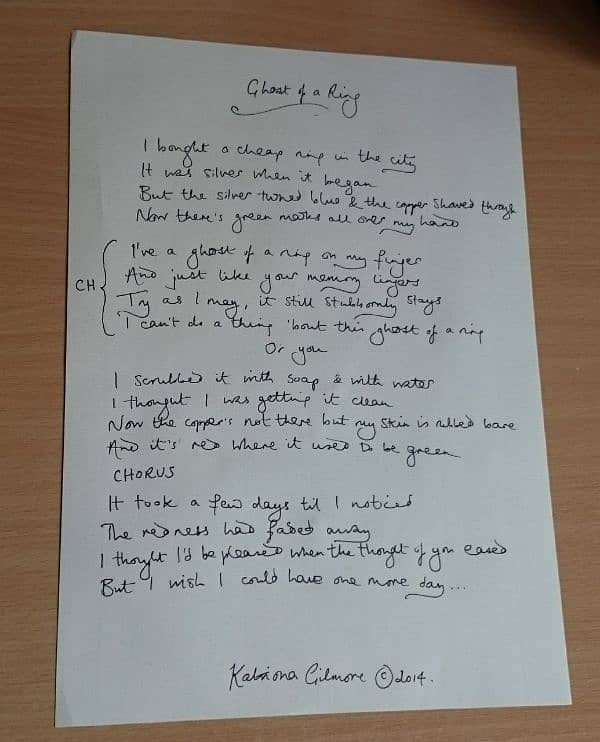 Ghost of a Ring
I bought a cheap ring in the city
It was silver when it began
But the silver turned blue & the copper showed through
Now there's green marks all over my hand
I've a ghost of a ring on my finger
And just like your memory lingers
CH
Try as I may, it still stubbornly stays
I can't do a thing 'bout this ghost of a ring
Or you
I scrubbed it with soap & with water
I thought I was getting it clean
Now the copper's not there but my skin is rubbed bare
And it's red where it used to be green
CHORUS
It took a few days til I noticed
The redness had faded away
I thought I'd be pleased when the thought of you eased
But I wish I could have one more day...
Katriona Gilmore ©2014.